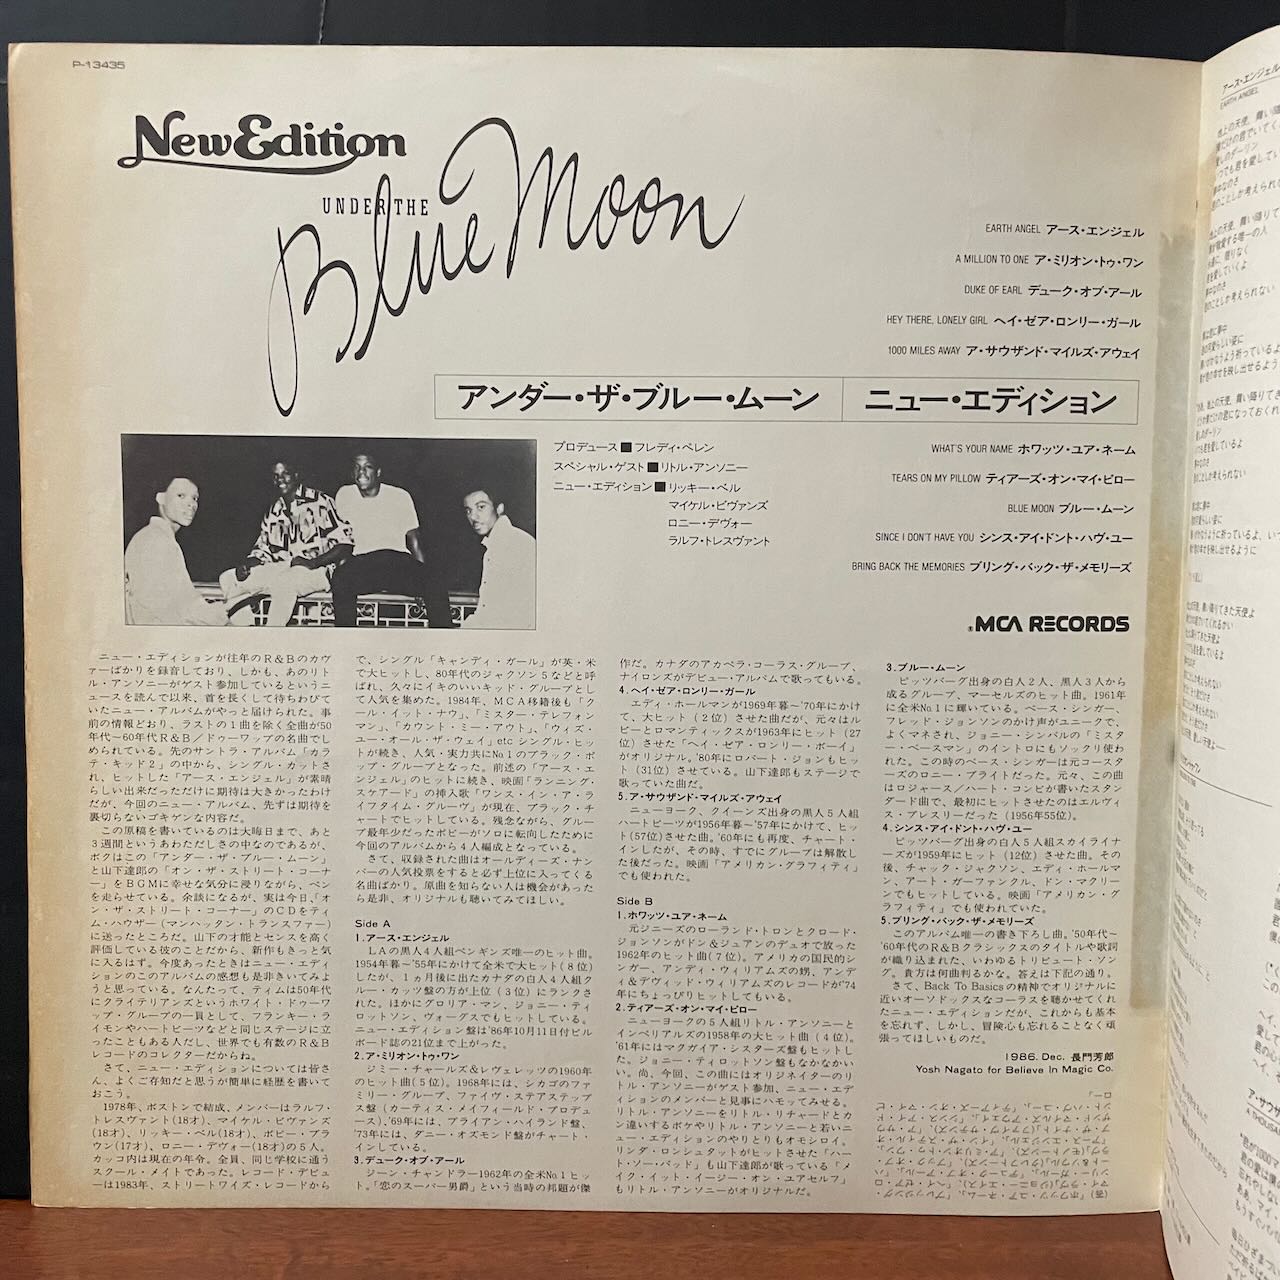 P-13435
New Edition
UNDER THE
Blue Moon
EARTH ANGEL アース・エンジェル
A MILLION TO ONE ア・ミリオン・トゥ・ワン
DUKE OF EARL デューク・オブ・アール
HEY THERE, LONELY GIRL ヘイ・ゼア・ロンリー・ガール
1000 MILES AWAY ア・サウザンド・マイルズ・アウェイ
アンダー・ザ・ブルー・ムーン ニュー・エディション
プロデュース■フレディ・ペレン
スペシャル・ゲスト■リトル・アンソニー
ニュー・エディション■リッキー・ベル
マイケル・ビヴァンズ
ロニー・デヴォー
ラルフ・トレスヴァント
WHAT'S YOUR NAME ホワッツ・ユア・ネーム
TEARS ON MY PILLOW ティアーズ・オン・マイ・ピロー
BLUE MOON ブルー・ムーン
SINCE I DON'T HAVE YOU シンス・アイ・ドント・ハヴ・ユー
BRING BACK THE MEMORIES ブリング・バック・ザ・メモリーズ
MCA RECORDS
ニュー・エディションが往年のR&Bのカヴ
ァーばかりを録音しており、しかも、あのリト
ル・アンソニーがゲスト参加しているというニ
ュースを読んで以来、首を長くして待ちわびて
いたニュー・アルバムがやっと届けられた。事
前の情報どおり、ラストの1曲を除く全曲が50
年代〜60年代R&B/ドゥーワップの名曲でし
められている。先のサントラ・アルバム「カラ
テ・キッド2」の中から、シングル・カットさ
れ、ヒットした「アース・エンジェル」が素晴
らしい出来だっただけに期待は大きかったわけ
だが、今回のニュー・アルバム、先ずは期待を
裏切らないゴキゲンな内容だ。
この原稿を書いているのは大晦日まで、あと
3週間というあわただしさの中なのであるが、
ボクはこの「アンダー・ザ・ブルー・ムーン」
と山下達郎の「オン・ザ・ストリート・コーナ
ー」をBGMに幸せな気分に浸りながら、ペン
を走らせている。余談になるが、実は今日、「オ
ン・ザ・ストリート・コーナー」のCDをティ
ム・ハウザー(マンハッタン・トランスファー)
に送ったところだ。山下の才能とセンスを高く
評価している彼のことだから、新作もきっと気
に入るはず。今度あったときはニュー・エディ
ションのこのアルバムの感想も是非きいてみよ
うと思っている。なんたって、ティムは50年代
にクライテリアンズというホワイト・ドゥーワ
ップ・グループの一員として、フランキー・ラ
イモンやハートビーツなどと同じステージに立
ったこともある人だし、世界でも有数のR&B
レコードのコレクターだからね。
さて、ニュー・エディションについては皆さ
ん、よくご存知だと思うが簡単に経歴を書いて
おこう。
1978年、ボストンで結成、メンバーはラルフ・
トレスヴァント(18才)、マイケル・ビヴァンズ
(18才)、リッキー・ベル(18才)、ボビー・ブラ
ウン(17才)、ロニー・デヴォー(18才)の5人。
カッコ内は現在の年令。全員、同じ学校に通う
スクール・メイトであった。レコード・デビュ
ーは1983年、ストリートワイズ・レコードから
で、シングル「キャンディ・ガール」が英・米
で大ヒットし、80年代のジャクソン5などと呼
ばれ、久々にイキのいいキッド・グループとし
て人気を集めた。1984年、MCA移籍後も「ク
ール・イット・ナウ」、「ミスター・テレフォン
マン」、「カウント・ミー・アウト」、「ウィズ・
ユー・オール・ザ・ウェイ」etc シングル・ヒッ
トが続き、人気・実力共にNo.1のブラック・ポ
ップ・グループとなった。前述の「アース・エ
ンジェル」のヒットに続き、映画「ランニング・
スケアード」の挿入歌「ワンス・イン・ア・ラ
イフタイム・グルーヴ」が現在、ブラック・チ
ャートでヒットしている。残念ながら、グルー
プ最年少だったボビーがソロに転向したために
今回のアルバムから4人編成となっている。
さて、収録された曲はオールディーズ・ナン
バーの人気投票をすると必ず上位に入ってくる
名曲ばかり。原曲を知らない人は機会があった
ら是非、オリジナルも聴いてみてほしい。
Side A
1.アース・エンジェル
LAの黒人4人組ペンギンズ唯一のヒット曲。
1954年暮〜'55年にかけて全米で大ヒット(8位)
したが、1ヵ月後に出たカナダの白人4人組ク
ルー・カッツ盤の方が上位(3位)にランクさ
れた。ほかにグロリア・マン、ジョニー・ティ
ロットソン、ヴォーグスでもヒットしている。
ニュー・エディション盤は'86年10月11日付ビル
ボード誌の21位まで上がった。
2.ア・ミリオン・トゥ・ワン
ジミー・チャールズ&レヴェレッツの1960年
のヒット曲(5位)。1968年には、シカゴのファ
ミリー・グループ、ファイヴ・ステアステップ
ス盤(カーティス・メイフィールド・プロデュ
ース)、'69年には、ブライアン・ハイランド盤、
'73年には、ダニー・オズモンド盤がチャート・
インしている。
3.デューク・オブ・アール
ジーン・チャンドラー1962年の全米No.1ヒッ
ト。「恋のスーパー男爵」という当時の邦題が傑
作だ。カナダのアカペラ・コーラス・グループ、
ナイロンズがデビュー・アルバムで歌ってもいる。
4.ヘイ・ゼア・ロンリー・ガール
エディ・ホールマンが1969年暮〜'70年にかけ
て、大ヒット(2位)させた曲だが、元々はル
ビーとロマンティックスが1963年にヒット(27
位)させた「ヘイ・ゼア・ロンリー・ボーイ」
がオリジナル。'80年にロバート・ジョンもヒッ
ト(31位)させている。山下達郎もステージで
歌っていた曲だ。
5.ア・サウザンド・マイルズ・アウェイ
ニューヨーク、クイーンズ出身の黒人5人組
ハートビーツが1956年暮〜'57年にかけて、ヒッ
ト(57位)させた曲。'60年にも再度、チャート・
インしたが、その時、すでにグループは解散し
た後だった。映画「アメリカン・グラフィティ」
でも使われた。
Side B
1.ホワッツ・ユア・ネーム
元ジニーズのローランド・トロンとクロード・
ジョンソンがドン&ジュアンのデュオで放った
1962年のヒット曲(7位)。アメリカの国民的シ
ンガー、アンディ・ウィリアムズの甥、アンデ
ィ&デヴィッド・ウィリアムズのレコードが'74
年にちょっぴりヒットしてもいる。
2.ティアーズ・オン・マイ・ピロー
ニューヨークの5人組リトル・アンソニーと
インペリアルズの1958年の大ヒット曲(4位)。
'61年にはマクガイア・シスターズ盤もヒットし
た。ジョニー・ティロットソン盤もなかなかい
い。尚、今回、この曲にはオリジネイターのリ
トル・アンソニーがゲスト参加、ニュー・エデ
ィションのメンバーと見事にハモってみせる。
リトル・アンソニーをリトル・リチャードとカ
ン違いするボケやリトル・アンソニーと若いニ
ュー・エディションのやりとりもオモシロイ。
リンダ・ロンシュタットがヒットさせた「ハー
ト・ソー・バッド」も山下達郎が歌っている「メ
イク・イット・イージー・オン・ユアセルフ」
もリトル・アンソニーがオリジナルだ。
3.ブルー・ムーン
ピッツバーグ出身の白人2人、黒人3人から
成るグループ、マーセルズのヒット曲。1961年
に全米No.1に輝いている。ベース・シンガー、
フレッド・ジョンソンのかけ声がユニークで、
よくマネされ、ジョニー・シンバルの「ミスタ
ー・ベースマン」のイントロにもソックリ使わ
れた。この時のベース・シンガーは元コースタ
ーズのロニー・ブライトだった。元々、この曲
はロジャース/ハート・コンビが書いたスタン
ダード曲で、最初にヒットさせたのはエルヴィ
ス・プレスリーだった(1956年55位)。
4.シンス・アイ・ドント・ハヴ・ユー
ピッツバーグ出身の白人5人組スカイライナ
ーズが1959年にヒット(12位)させた曲。その
後、チャック・ジャクソン、エディ・ホールマ
ン、アート・ガーファンクル、ドン・マクリー
ンでもヒットしている。映画「アメリカン・グ
ラフィティ」でも使われていた。
5.ブリング・バック・ザ・メモリーズ
このアルバム唯一の書き下ろし曲。'50年代〜
'60年代のR&Bクラシックスのタイトルや歌詞
が織り込まれた、いわゆるトリビュート・ソン
グ。貴方は何曲判るかな。答えは下記の通り。
さて、Back To Basicsの精神でオリジナルに
近いオーソドックスなコーラスを聴かせてくれ
たニュー・エディションだが、これからも基本
を忘れず、しかし、冒険心も忘れることなく頑
張ってほしいものだ。
1986. Dec. 長門芳郎
Yosh Nagato for Believe In Magic Co.
アース・エンジェル
EARTH ANGEL